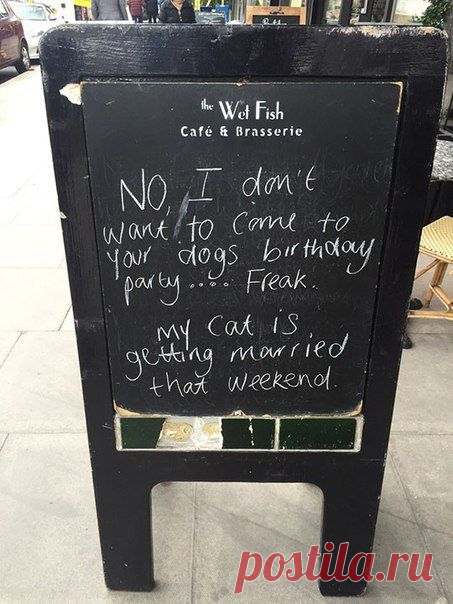 the Wet Fish
Café & Brasserie
NO, I don't
want to come to
your dogs birthday
party.... Freak.
my cat is
getting married
that weekend.
postila.ru